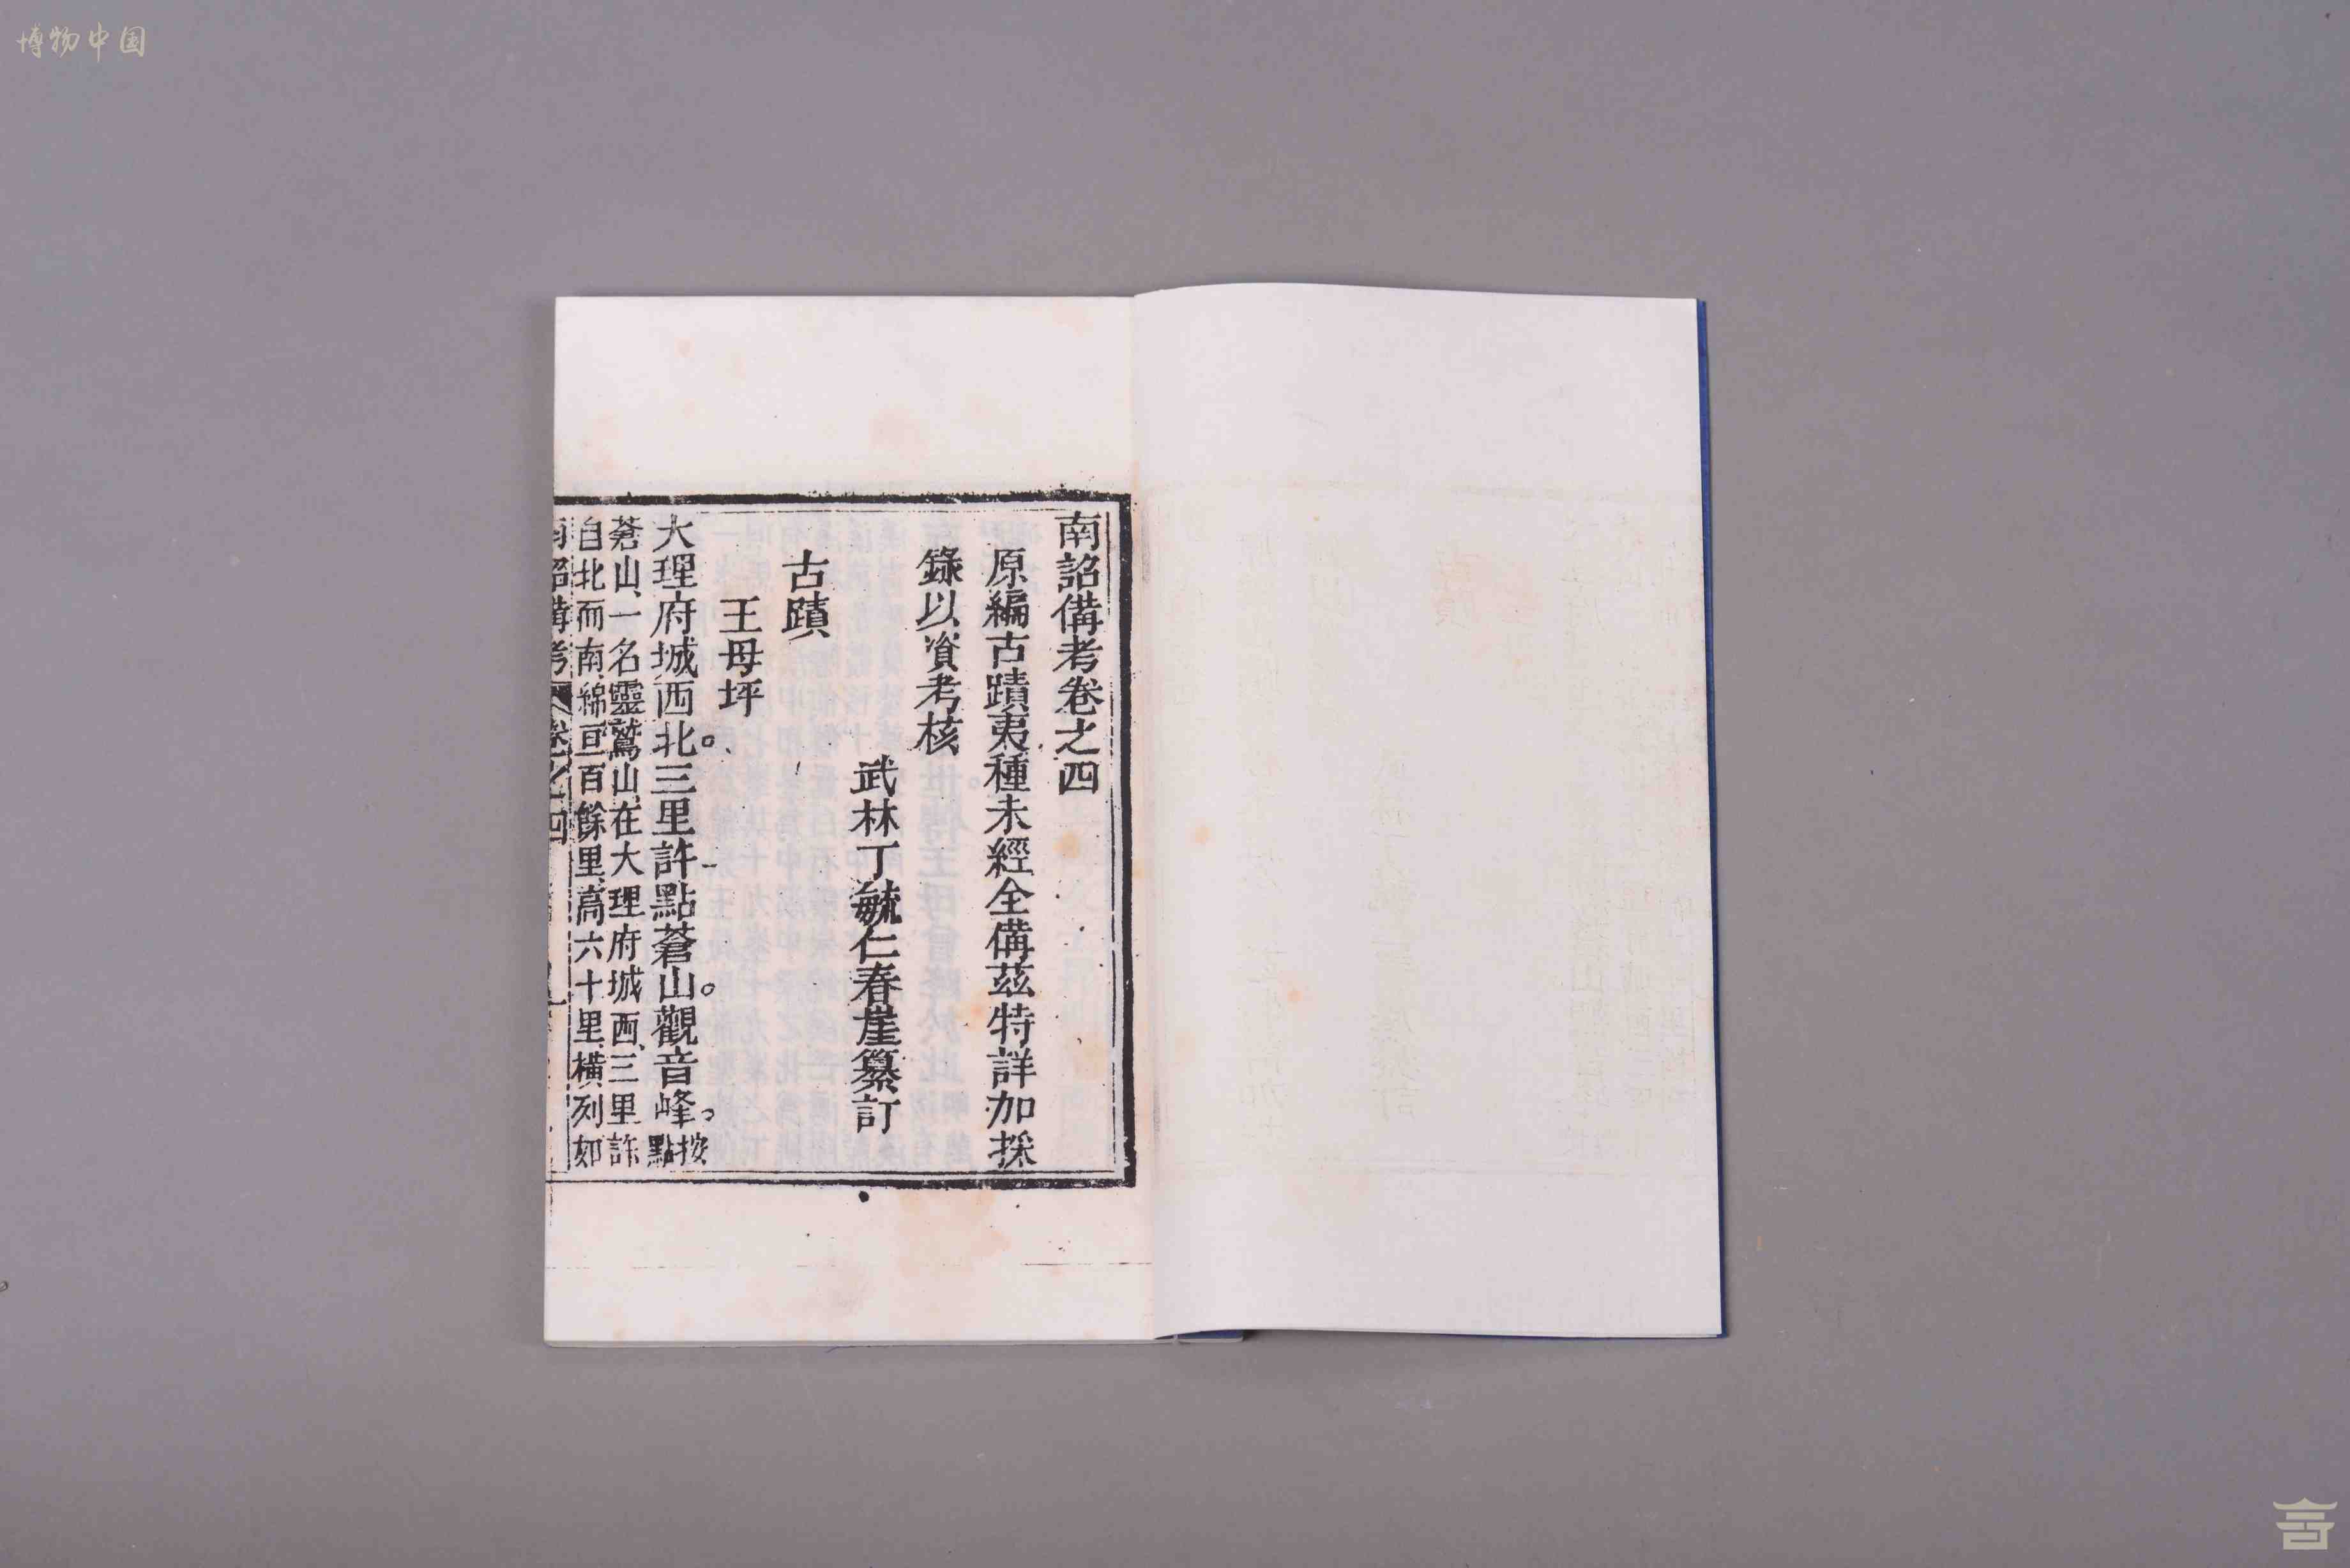 博物中国
南詔備考卷之四
原編古蹟夷種未經全備茲特詳加採
錄以資考核
武林丁毓仁春崖纂訂
古蹟
王母坪
大理府城西北。三里許點蒼山。觀音峰。按點
蒼山、一名靈鷲山、在大理府城西、三里許
自北而南、綿亘百餘里、高六十里、橫列如
南詔備考 卷之四